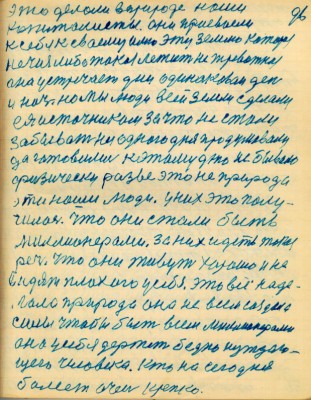 это делали в природе нашу 96
капиталисты. они приеваем
к себе к своему ... эту землю котора
не чия либо такая летит не тревожна
она устречает дни одинаковаи ден
и ноч. но мы люди всей земли сделаны
ея источником за что не стали
забыват ни одного дня продумовали
да готовилис к этому дню не бывало
физически разве это не природа
эти наши люди. у них это полу-
чилас. что они стали быть
миллионерами. за них идёть такая
реч. что они живут хорошо и не
видят плохого у себя. это всё наде-
лала природа она не всем создала
силы чтобы быт всем миллионерами
она у себя держит бедно нуждаю-
щего человека. кто на сегодня
болеет очен крепко.